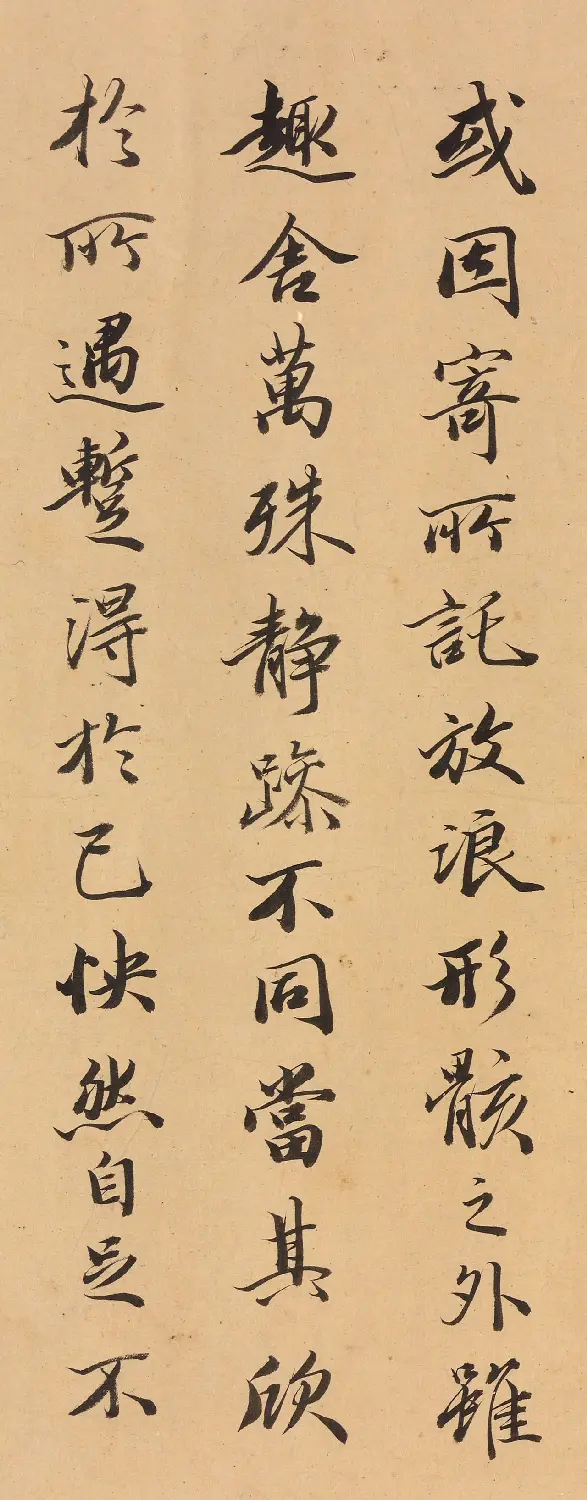 或因寄所託放浪形骸之外雖
趣舍萬殊靜躁不同當其欣
於所遇蹔得於己怏然自足不